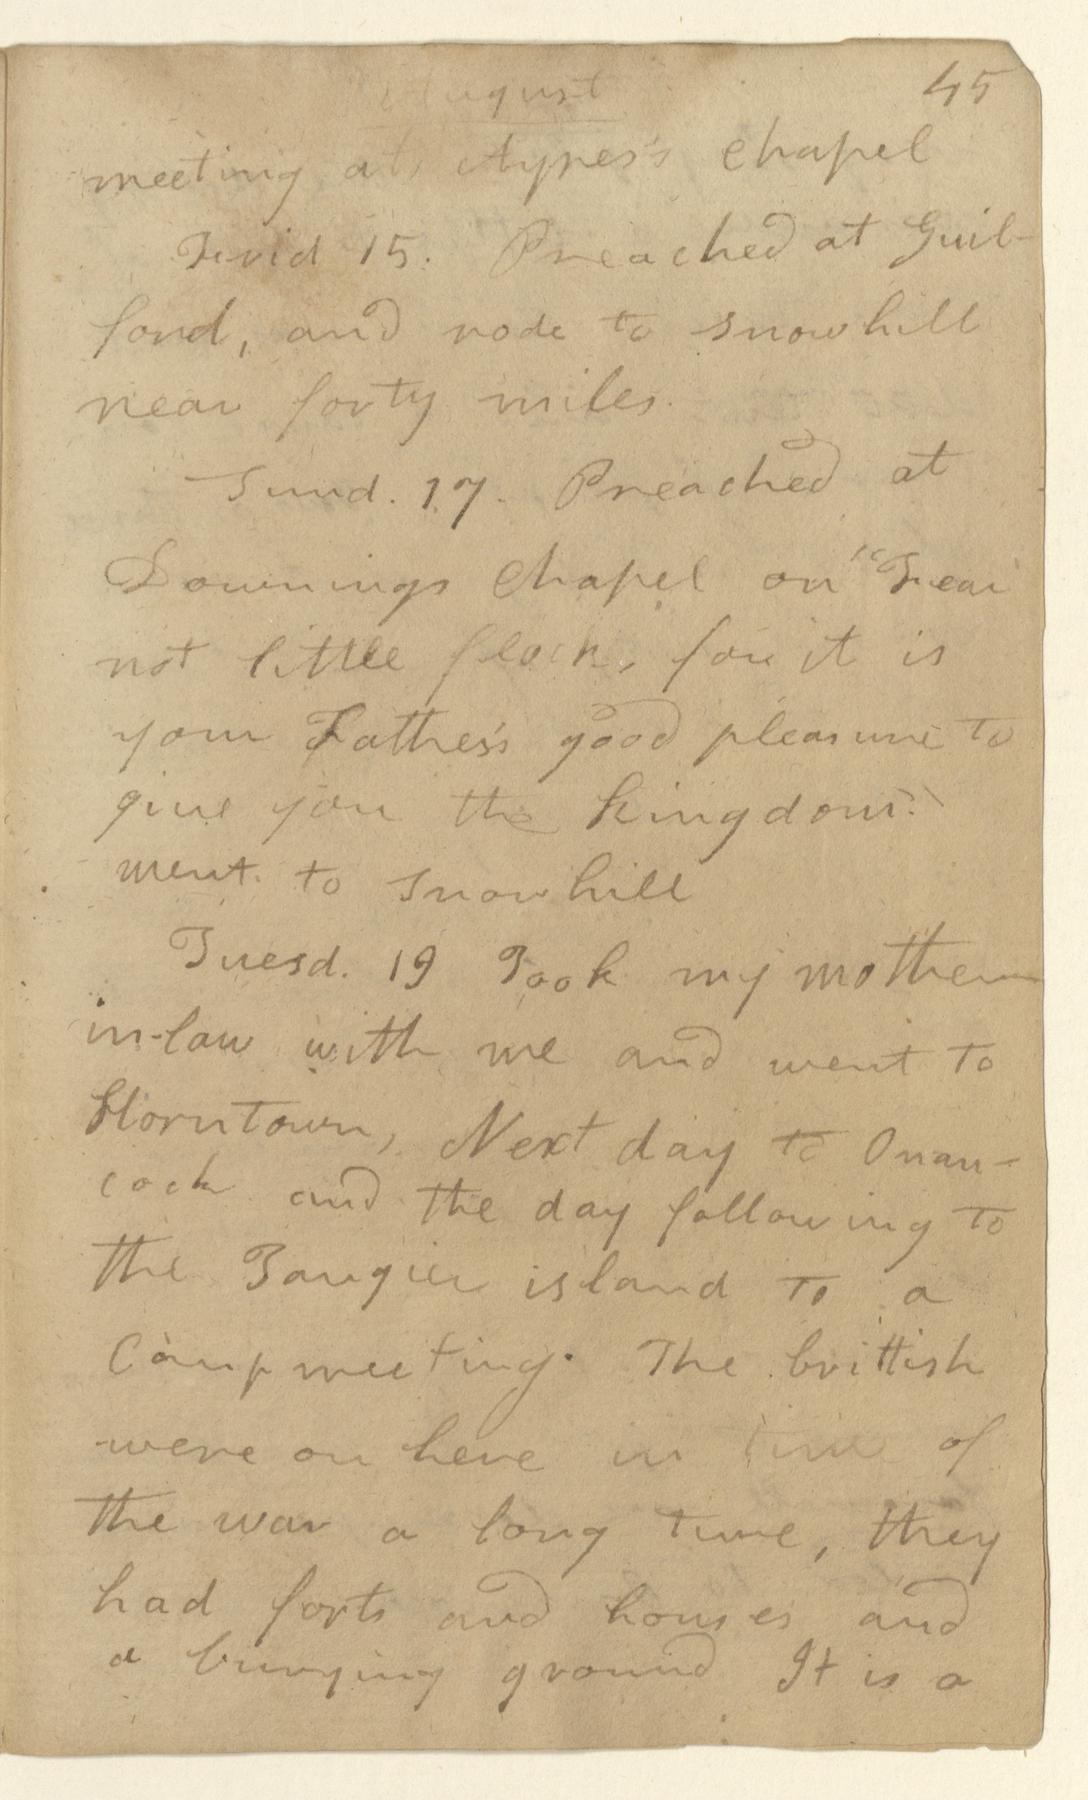 August
45
meeting at Ayres's Chapel
Frid 15. Preached at Guil-
ford, and rode to Snowhill
near forty miles.
Sund. 17. Preached at
Downings Chapel on "Fear
not little flock, for it is
your Father's good pleasure to
give you the kingdom."
went to Snowhill
Tuesd. 19 Took my mother
in-law with me and went to
Horntown, Next day to Onan-
cock and the day following to
the Tangier island to a
Camp meeting. The brittish
were on here in time of
the war a long time, they
had forts and houses and
a burying ground It is a